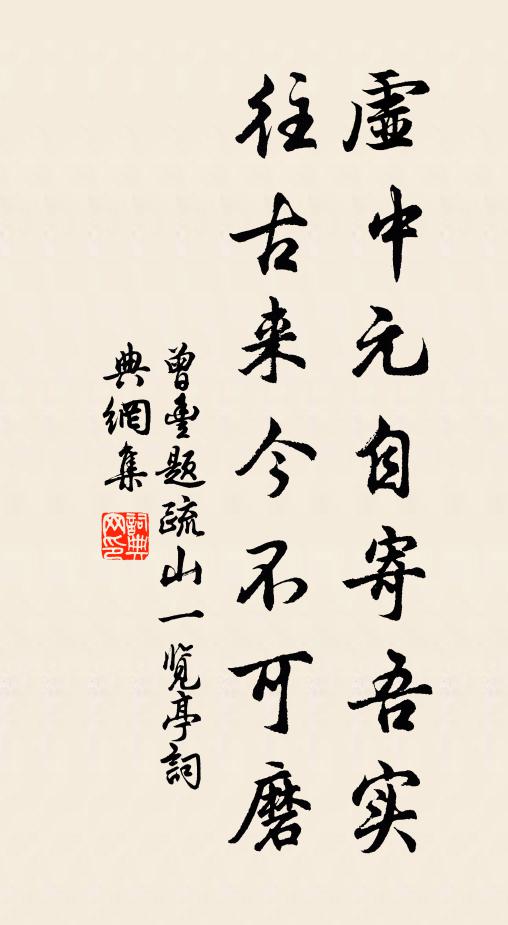 虛中元自寄吾实
往古来今不可磨
曾豊题疏山一览亭詞
典網集
詞典网印